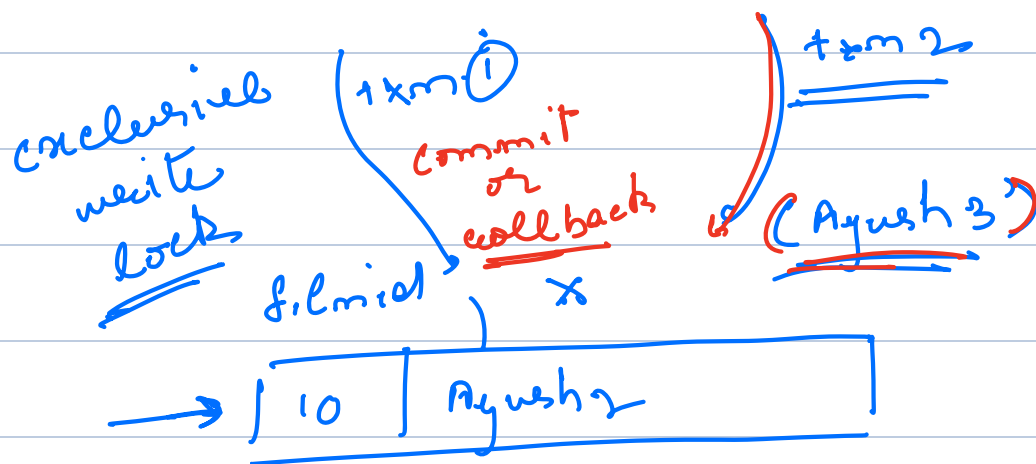 exclusive
write
lock
txn ①
commit
or
rollback
txn 2
(Ayush 3)
filmid
x
10 Ayush2